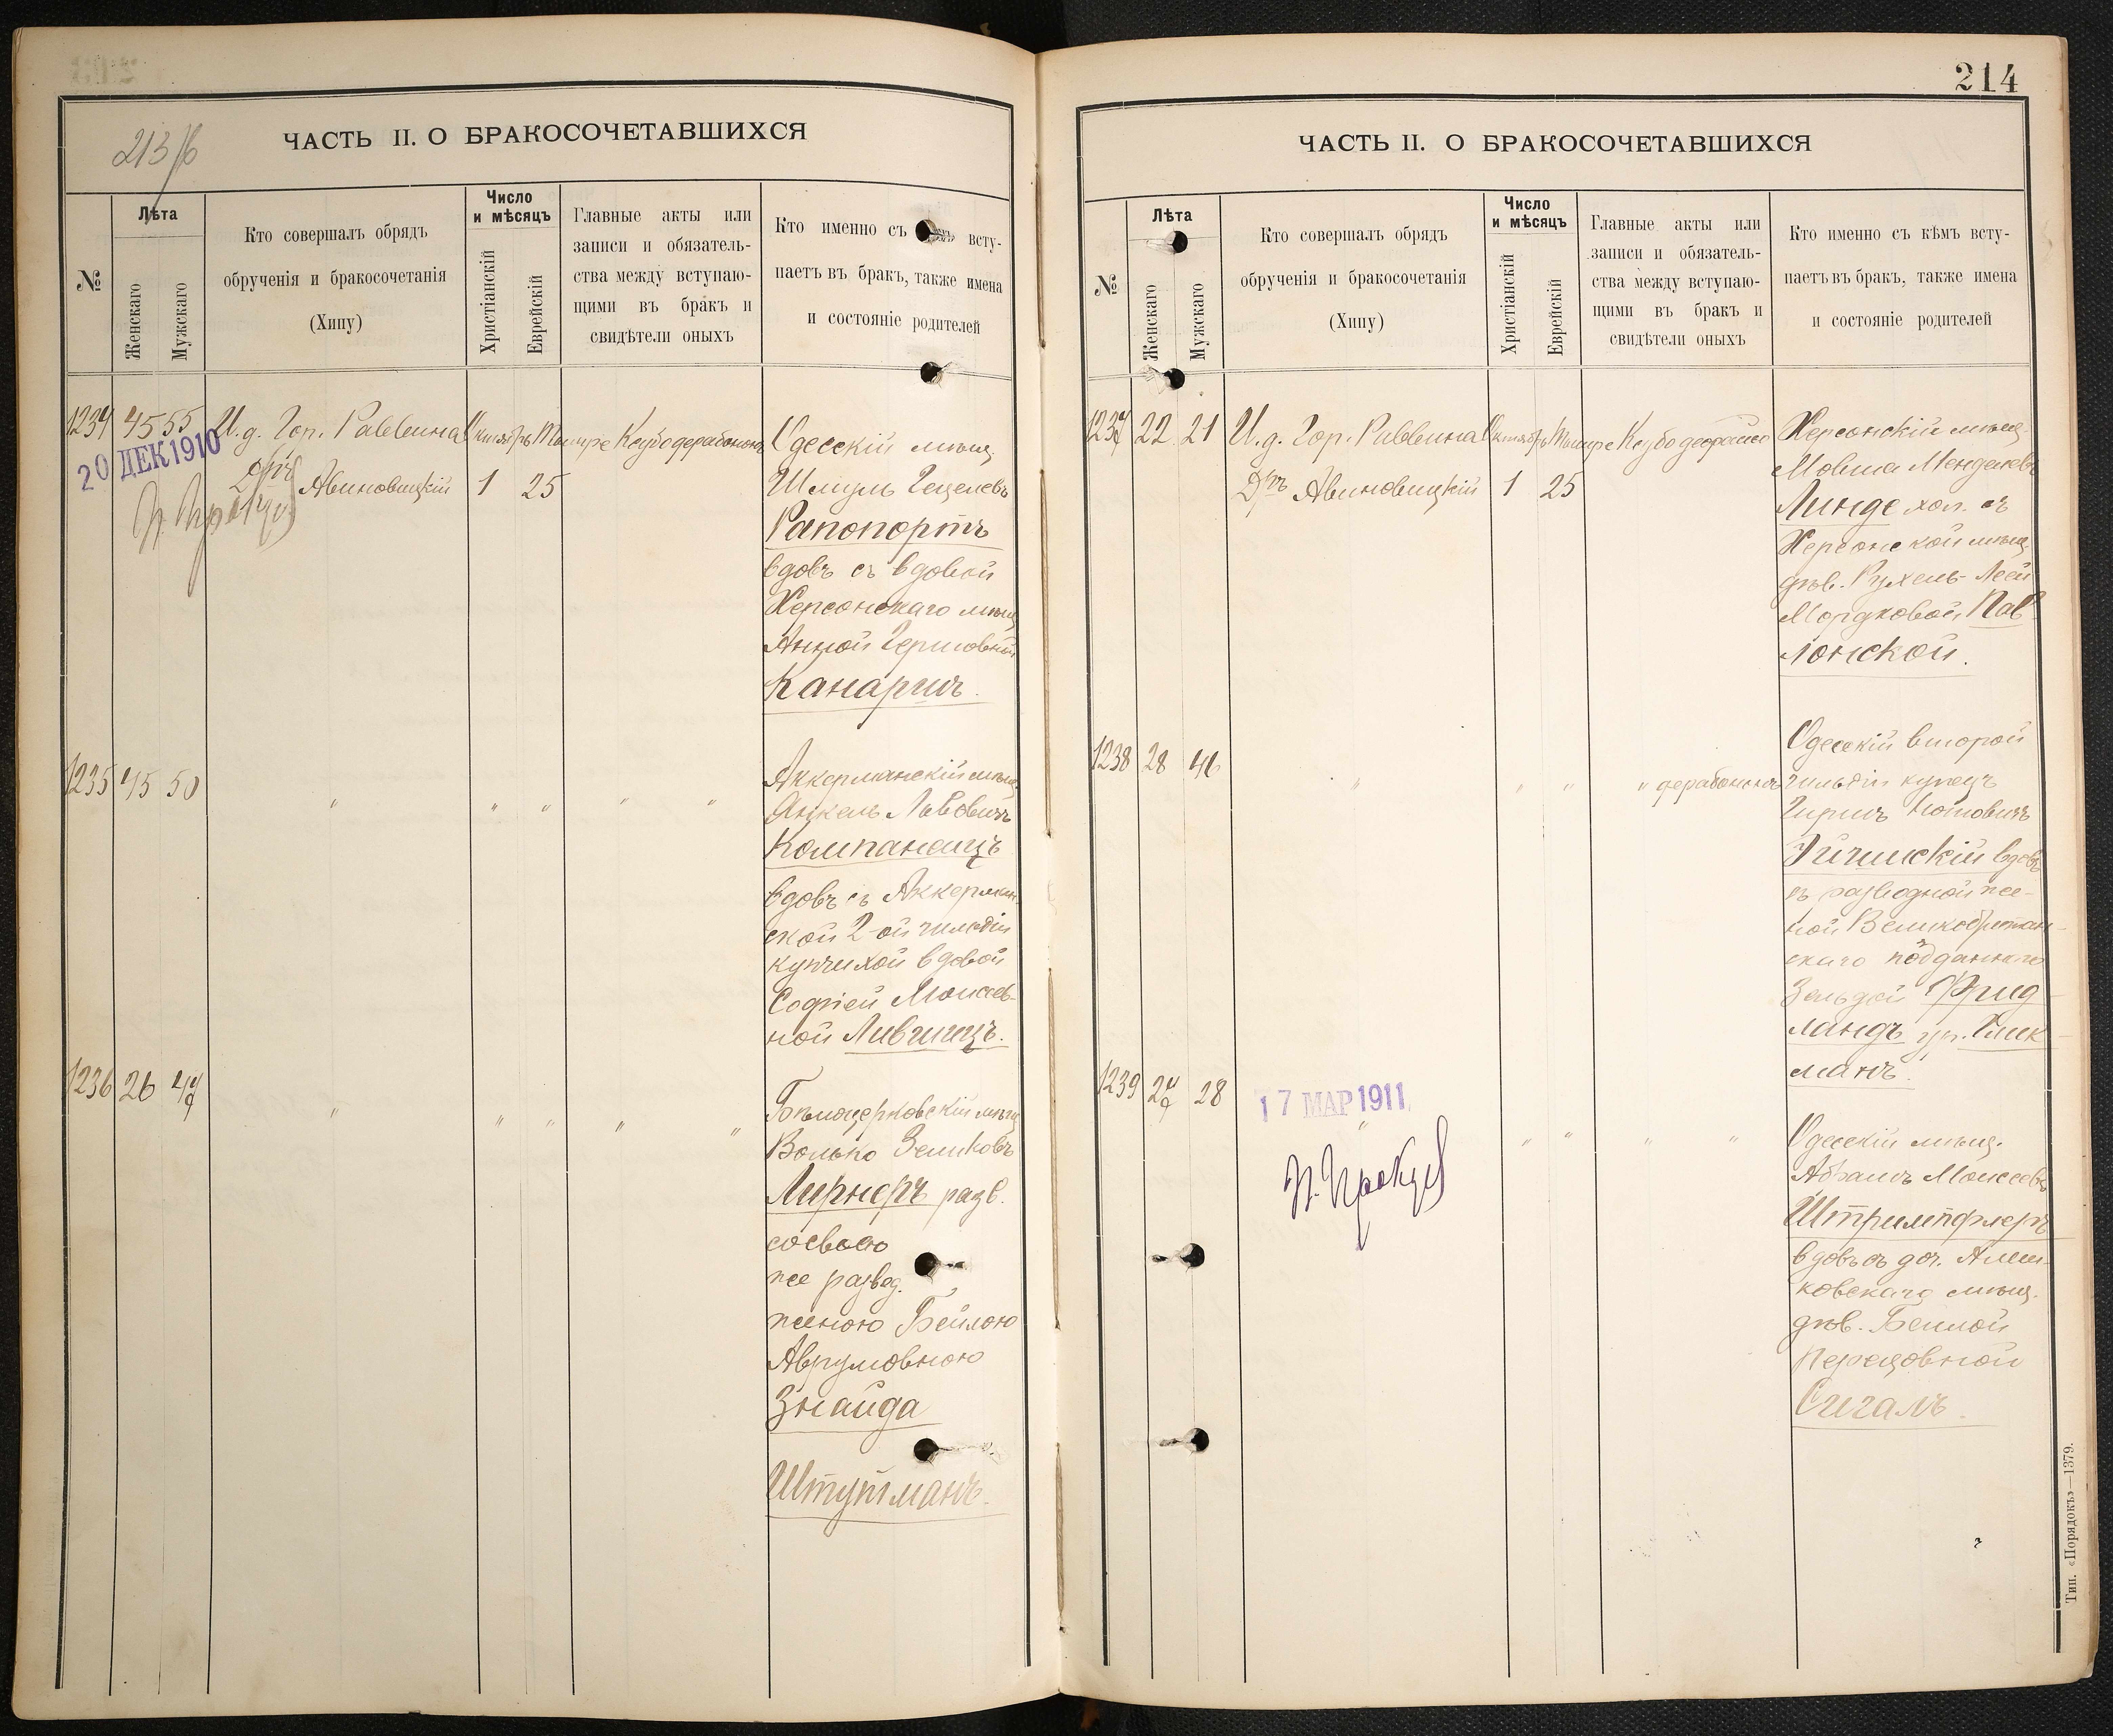 213/б
ЧАСТЬ II. О БРАКОСОЧЕТАВШИХСЯ
№
Лѣта
Женскаго
Мужскаго
Кто совершалъ обрядъ
обрученія и бракосочетанія
(Хипу)
Число
и мѣсяцъ
Христіанскій
Еврейскій
Главные акты или
записи и обязатель-
ства между вступаю-
щими въ бракъ и
свидѣтели оныхъ
Кто именно съ всту-
паетъ въ бракъ, также имена
и состояніе родителей
1234 45 55 И. д. Гор. Раввина Октябрь Тишре Ксубо дерабонон
20 ДЕК 1910
Д-ръ Авиновицкій 1 25
Одесскій мѣщ.
Шмуль Гецелевъ
Рапопортъ
вдовъ съ вдовой
Херсонскаго мѣщ.
Анной Гершовной
Канаричъ.
1235 45 50 " " " " "
Аккерманскій мѣщ.
Янкель Львовичъ
Компанеецъ
вдовъ съ Аккерман-
ской 2-ой гильдіи
купчихой вдовой
Софіей Моисеев-
ной Лившицъ.
1236 26 47 " " " " "
Бѣлоцерковскій мѣщ.
Волько Зелиговъ
Лирнеръ разв.
со своею
же развед.
женою Бейлою
Аврумовною
Знайда
Штутманъ.
214
ЧАСТЬ II. О БРАКОСОЧЕТАВШИХСЯ
№
Лѣта
Женскаго
Мужскаго
Кто совершалъ обрядъ
обрученія и бракосочетанія
(Хипу)
Число
и мѣсяцъ
Христіанскій
Еврейскій
Главные акты или
записи и обязатель-
ства между вступаю-
щими въ бракъ и
свидѣтели оныхъ
Кто именно съ кѣмъ всту-
паетъ въ бракъ, также имена
и состояніе родителей
1237 22 21 И. д. Гор. Раввина Октябрь Тишре Ксубо деорайсо
Д-ръ Авиновицкій 1 25
Херсонскій мѣщ.
Мовша Менделевъ
Линде хол. съ
Херсонской мѣщ.
дѣв. Рухель-Леей
Мордковой Пав-
лонской.
1238 28 46 " " " " дерабонон
Одесскій второй
гильдіи купецъ
Гиршъ Нотовичъ
вдовъ
съ разводной же-
ной Великобритан-
скаго подданнаго
Зельдой Фрид-
ландъ ур. Глик-
манъ.
1239 24 28 " " " " "
17 МАР 1911
Одесскій мѣщ.
Абрамъ Моисеевъ
Штримпфлеръ
вдовъ съ доч. Алеш-
ковскаго мѣщ.
дѣв. Бейлой
Перецовной
Сигалъ.
Тип. «Порядокъ»—1379.